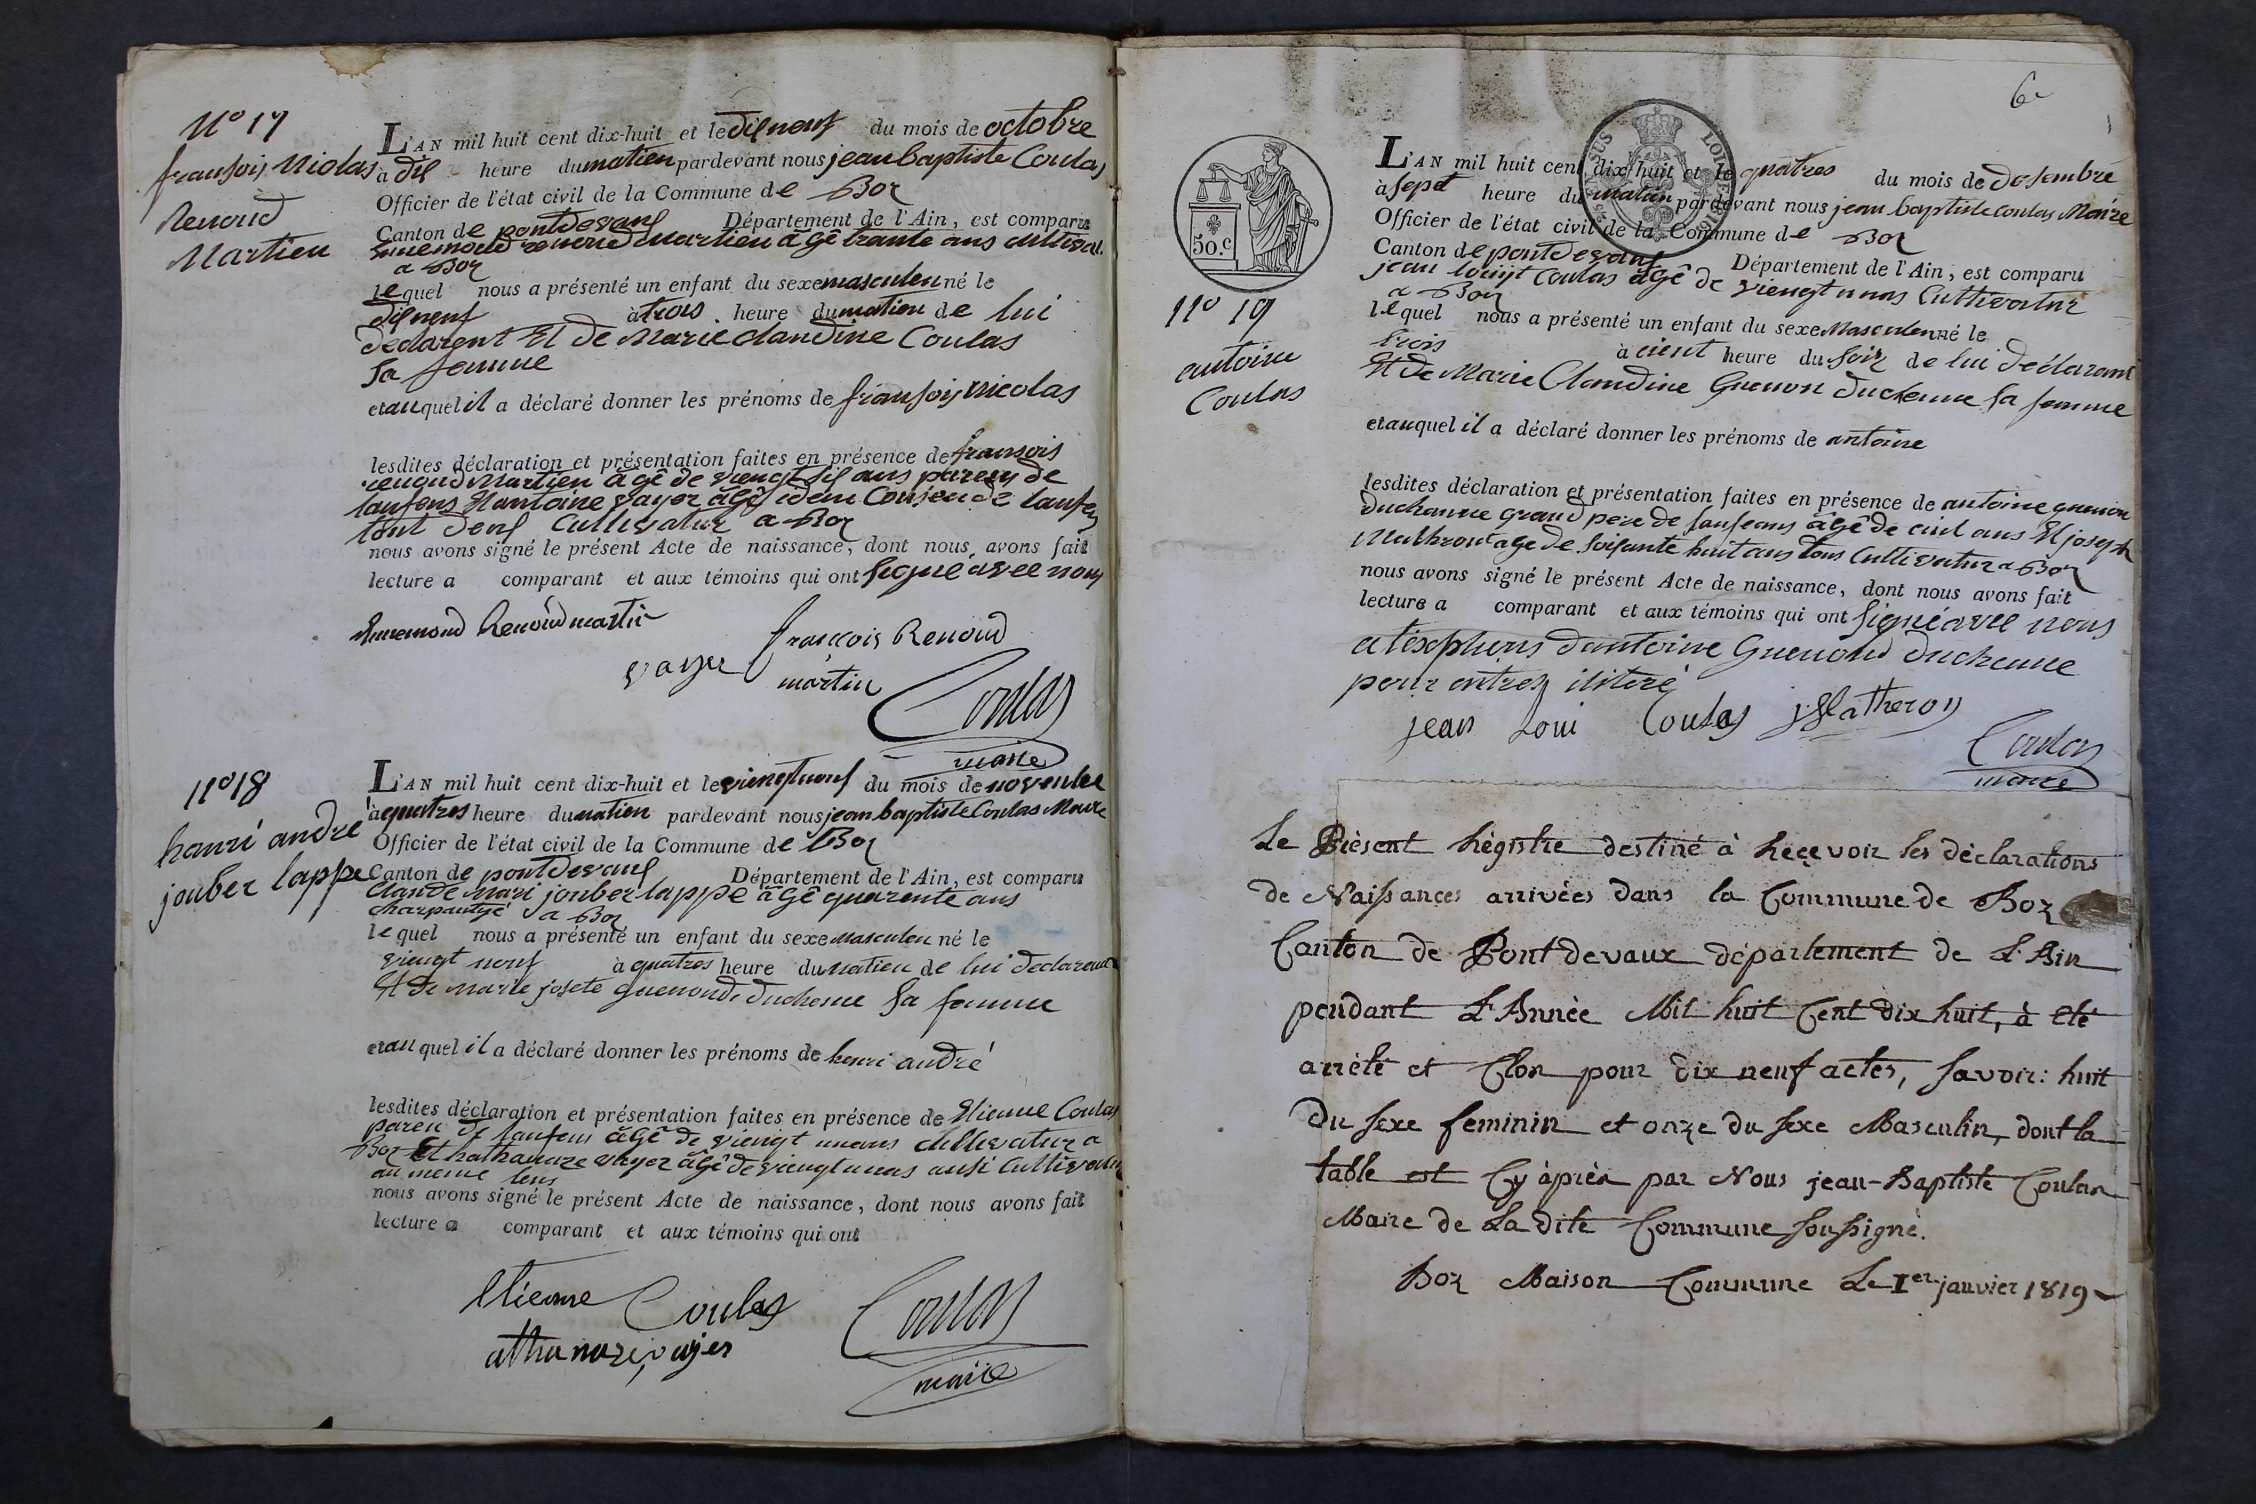 N° 17
fransois Nicolas
Renoud
Martien
L'AN mil huit cent dix-huit et le dix neuf du mois de octobre
à dix heure du matien pardevant nous jean baptiste Coulas
Officier de l'état civil de la Commune de Boz
Canton de pontdevaux Département de l'Ain, est comparu
Ennemond renoud Martien âgé trante ans cultivat.
a Boz
lequel nous a présenté un enfant du sexe masculen né le
dix neuf à trois heure du matien de lui
declarent Et de Marie claudine Coulas
sa femme
et auquel il a déclaré donner les prénoms de fransois nicolas
lesdites déclaration et présentation faites en présence de fransois
renoud Martien âgé de viengt six ans paren de
lanfens Et antoine vayer âgé idem Consien de lanfen
tout deux Cultivatur a Boz
nous avons signé le présent Acte de naissance, dont nous avons fait
lecture a comparant et aux témoins qui ont signé avec nous
Ennemond Renoud martin
françois Renoud
vayer martin
Coulas
maire
N° 18
hanri andré
jouber lappe
L'AN mil huit cent dix-huit et le viengt neuf du mois de novenbre
à quatres heure du matien pardevant nous jean baptiste Coulas Maire
Officier de l'état civil de la Commune de Boz
Canton de pontdevaux Département de l'Ain, est comparu
Claude Mari jouber lappe âgé quarente ans
charpantyé a Boz
lequel nous a présenté un enfant du sexe masculen né le
viengt neuf à quatres heure du matien de lui declarent
Et de Marie josete guenoude duchesne sa femme
et auquel il a déclaré donner les prénoms de henri andré
lesdites déclaration et présentation faites en présence de Etienne Coulas
paren de lanfens âgé de viengt un ans cultivatur a
Boz Et hathanaze vayer âgé de viengt un as ausi Cultivatur
au meme lieus
nous avons signé le présent Acte de naissance, dont nous avons fait
lecture a comparant et aux témoins qui ont
Etienne Coulas
Coulas
athanaze vayer
maire
6e
50.c
N° 19
antoine
Coulas
L'AN mil huit cent dix-huit et le quatres du mois de desembre
à sept heure du matien pardevant nous jean baptiste coulas Maire
Officier de l'état civil de la Commune de Boz
Canton de pontdevaux Département de l'Ain, est comparu
jean louis Coulas âgé de viengt un as Cultivatur
a Boz
lequel nous a présenté un enfant du sexe Masculen né le
trois à cient heure du soir de lui déclarant
Et de Marie Claudine Guenon duchenne sa femme
et auquel il a déclaré donner les prénoms de antoine
lesdites déclaration et présentation faites en présence de antoine guenon
duchanne grand pere de lanfeans âgé de ans Et joseph
Mathron âgé de soisante huit ans tous Cultivatur a Boz
nous avons signé le présent Acte de naissance, dont nous avons fait
lecture a comparant et aux témoins qui ont signé avec nous
a l'exsptions dantoine Guenoud duchenne
pour entres iliteré
jean Loui Coulas j Matheron
Coulas
maire
Le Présent Régistre destiné à Recevoir les déclarations
de Naissances arrivées dans la Commune de Boz
Canton de Pont devaux département de L'Ain
pendant L'Année Mil huit Cent dix huit, à eté
arrêté et Clos pour dix neuf actes, Savoir: huit
du Sexe feminin et onze du Sexe Masculin, dont la
table est Cy après par Nous jean-Baptiste Coulas
Maire de La dite Commune Soussigné.
Boz Maison Commune Le 1er janvier 1819